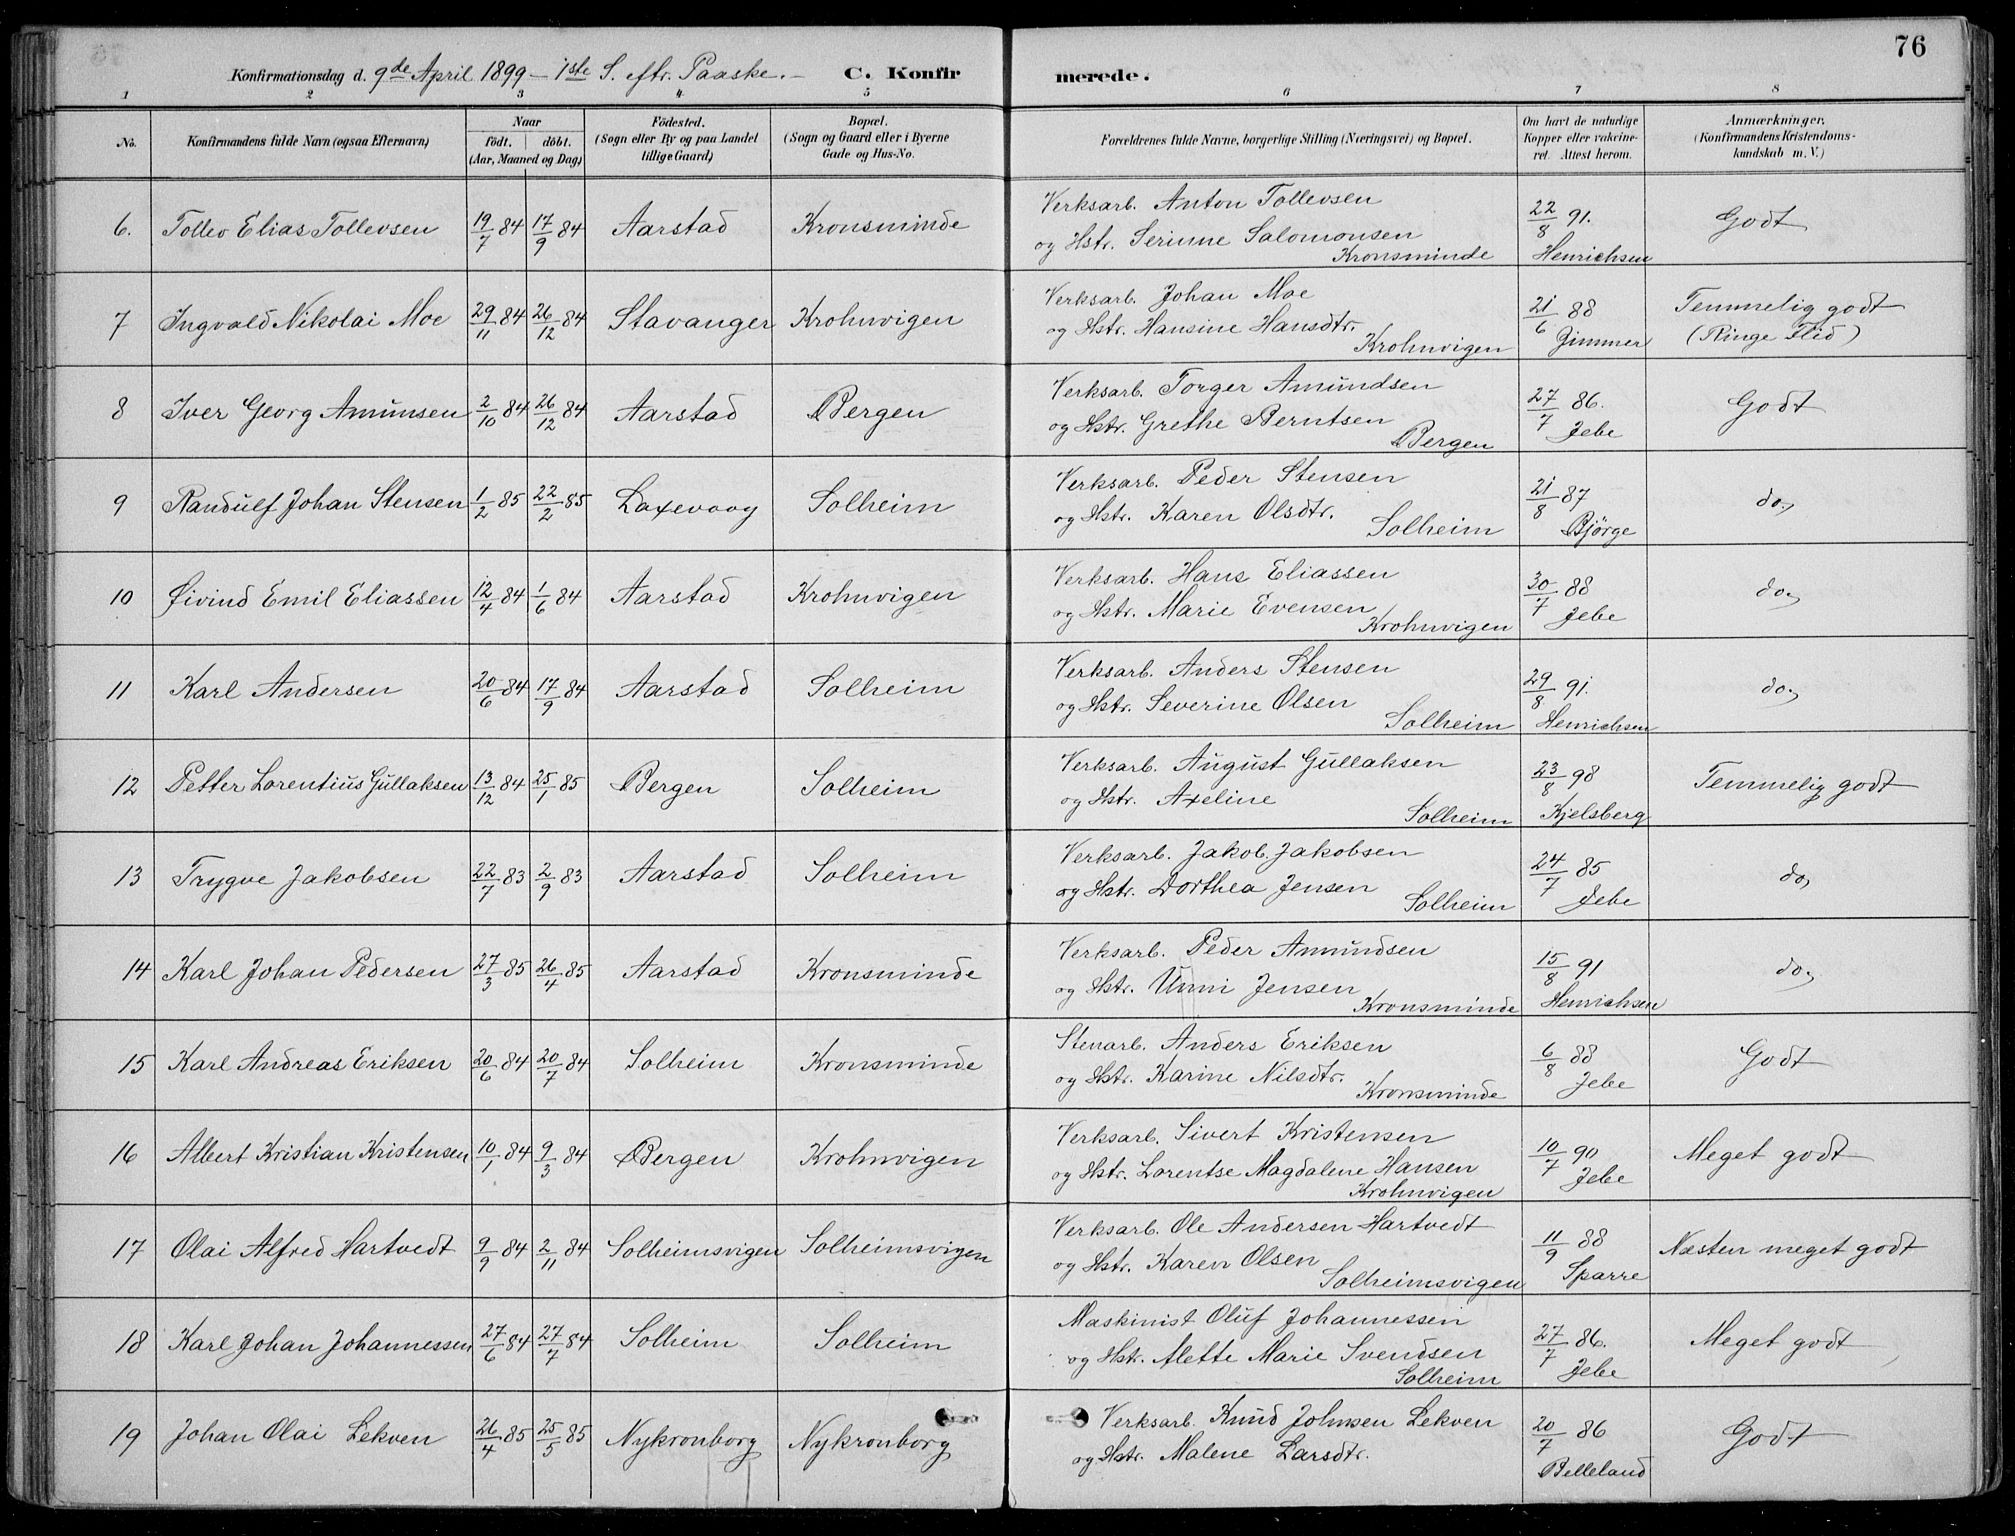 76
Konfirmationsdag d. 9de April 1899 – 1ste S. eftr. Paaske. – C. Konfirmerede.
1 2 3 4 5 6 7 8
No. Konfirmandens fulde Navn (ogsaa Efternavn) Naar født. døbt. (Aar, Maaned og Dag) Födested. (Sogn eller By og paa Landet tillige Gaard) Bopæl. (Sogn og Gaard eller i Byerne Gade og Hus-No. Forældrenes fulde Navne, borgerlige Stilling (Næringsvei) og Bopæl. Om havt de naturlige Kopper eller vakcineret. Attest herom. Anmærkninger. (Konfirmandens Kristendomskundskab m. V.)
6. Tollev Elias Tollevsen 19/7 84 17/9 84 Aarstad Kronsminde Verksarb. Anton Tollevsen og Hstr. Serinne Salomonsen Kronsminde 22/8 91. Henrichsen Godt
7 Ingvald Nikolai Moe 29/11 84 26/12 84 Stavanger Krohnvigen Verksarb. Johan Moe og Hstr. Hansine Hansdtr. Krohnvigen 21/6 88 Zimmer Temmelig godt (Ringe Flid)
8 Iver Georg Amunsen 2/10 84 26/12 84 Aarstad Bergen Verksarb. Torger Amundsen og Hstr. Grethe Berntsen Bergen 27/7 86. Jebe Godt
9 Randulf Johan Stensen 1/2 85 22/2 85 Laxevaag Solheim Verksarb. Peder Stensen og Hstr. Karen Olsdtr. Solheim 21/8 87 Bjørge do,
10 Øivind Emil Eliassen 12/4 84 1/6 84 Aarstad Krohnvigen Verksarb. Hans Eliassen og Hstr. Marie Evensen Krohnvigen 30/7 88 Jebe do,
11 Karl Andersen 20/6 84 17/9 84 Aarstad Solheim Verksarb. Anders Stensen og Hstr. Severine Olsen Solheim 29/8 91. Henrichsen do,
12 Petter Lorentius Gullaksen 13/12 84 25/1 85 Bergen Solheim Verksarb. August Gullaksen og Hstr. Axeline Solheim 23/8 98 Kjelsberg Temmelig godt
13 Trygve Jakobsen 22/7 83 2/9 83 Aarstad Solheim Verksarb. Jakob Jakobsen og Hstr. Dorthea Jensen Solheim 24/7 85 Jebe do,
14 Karl Johan Pedersen 27/3 85 26/4 85 Aarstad Kronsminde Verksarb. Peder Amundsen og Hstr. Unni Jensen Kronsminde 15/8 91 Henrichsen do,
15 Karl Andreas Eriksen 20/6 84 20/7 84 Solheim Kronsminde Stenarb. Anders Eriksen og Hstr. Karine Nilsdtr. Kronsminde 6/8 88 Jebe Godt
16 Albert Kristian Kristensen 10/1 84 9/3 84 Bergen Krohnvigen Verksarb. Sivert Kristensen og Hstr. Lorentse Magdalene Hansen Krohnvigen 10/7 90 Jebe Meget godt
17 Olai Alfred Hartvedt 9/9 84 2/11 84 Solheimsvigen Solheimsvigen Verksarb. Ole Andersen Hartvedt og Hstr. Karen Olsen Solheimsvigen 11/9 88 Sparre Næsten meget godt
18 Karl Johan Johannessen 27/6 84 27/7 84 Solheim Solheim Maskinist Oluf Johannessen og Hstr. Mette Marie Svendsen Solheim 27/7 86. Jebe Meget godt
19 Johan Olai Lekven 26/4 85 25/5 85 Nykronborg Nykronborg Verksarb. Knud Johnsen Lekven og Hstr. Malene Larsdtr. 20/7 86 Belleland Godt